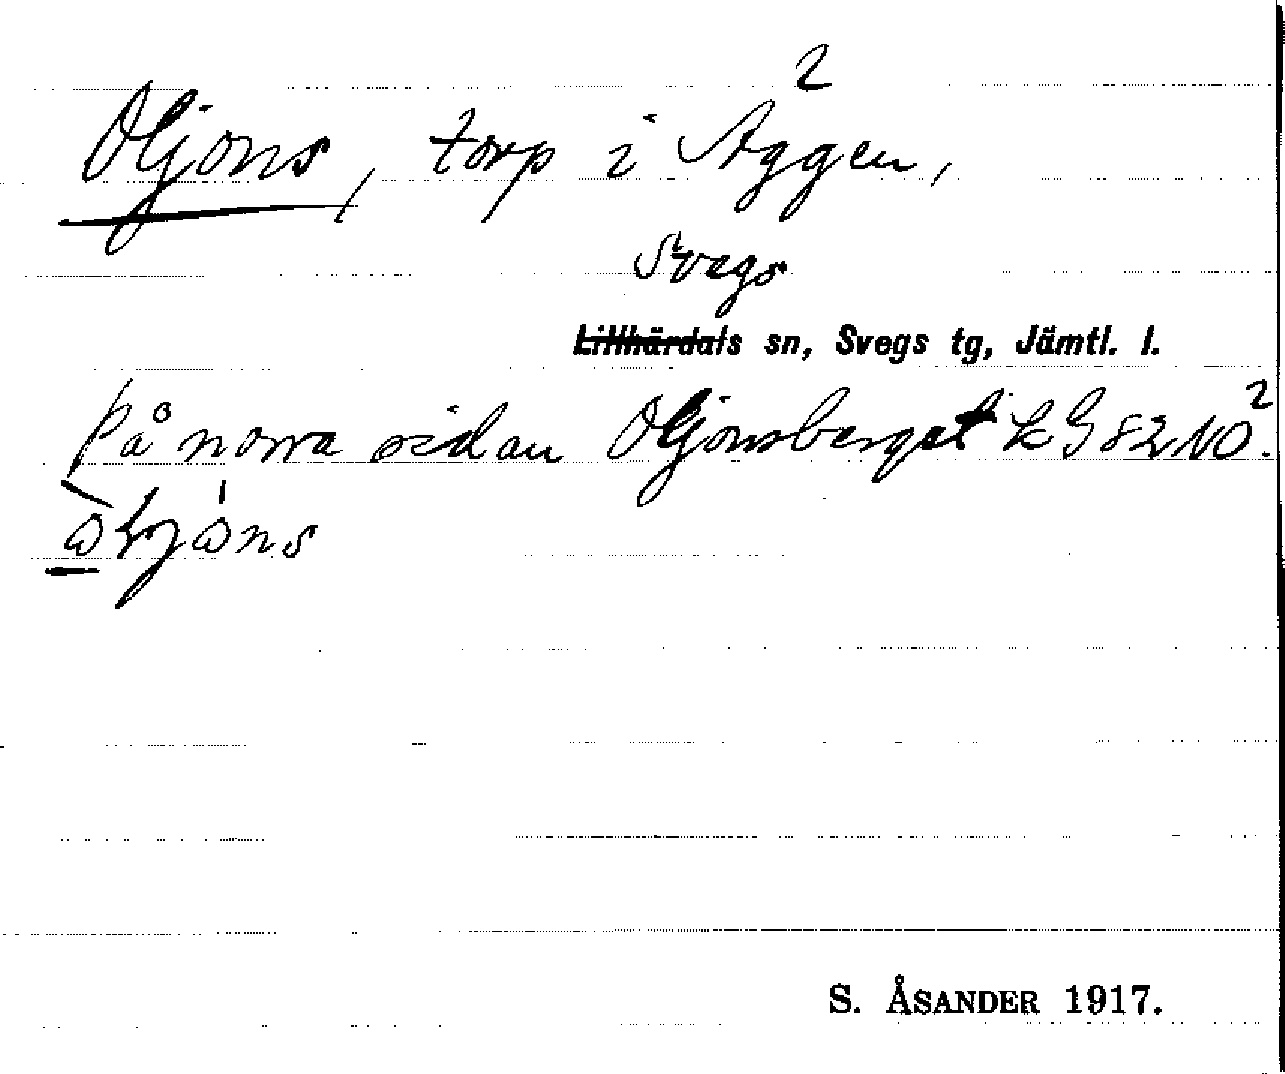 2
Oljons, torp i Äggen,
Svegs
Lillhärdals sn, Svegs tg, Jämtl. l.
På norra sidan Oljonsberget k G 82 NO².
S. ÅSANDER 1917.